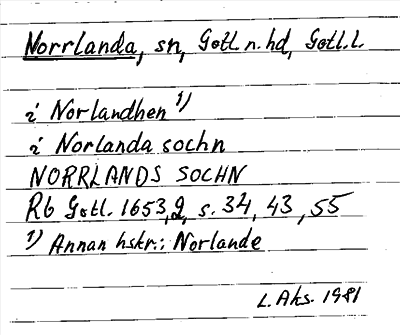 Norrlanda, sn, Gotl. n. hd, Gotl. L.
i Norlandhen 1)
i Norlanda sochn
NORRLANDS SOCHN
Rb Gotl. 1653, 2, s. 34, 43, 55
1) Annan hskr.: Norlande
L. Ahs. 1981